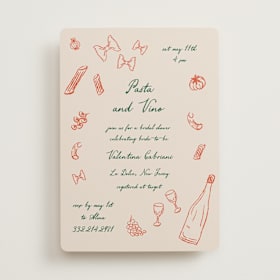 sat may 11th
4 pm
Pasta
and Vino
join us for a bridal shower
celebrating bride-to-be
Valentina Cabriani
La Dolce, New Jersey
registered at target
rsvp by may 1st
to Alma
332.214.2921